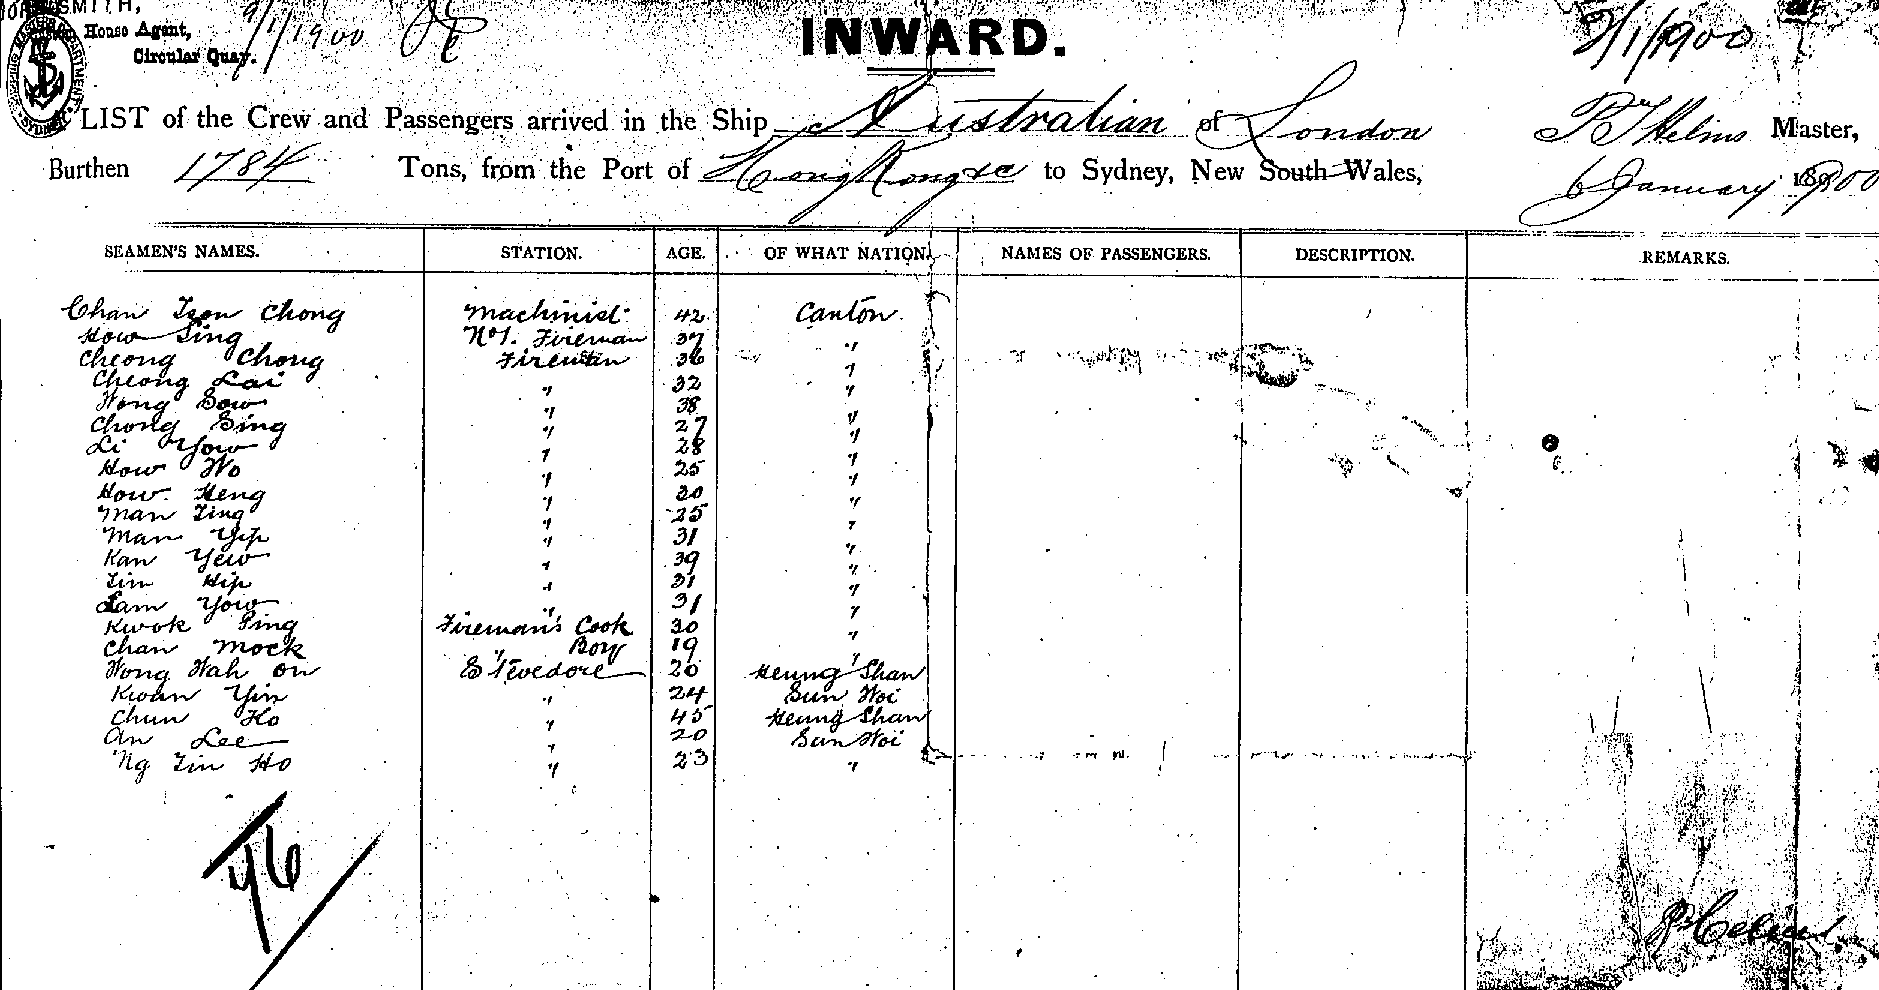 SMITH,
House Agent,
Circular Quay.
9/1/1900
INWARD.
9/1/1900
LIST of the Crew and Passengers arrived in the Ship Australian of London P T Helms Master,
Burthen 1784 Tons, from the Port of Hong Kong &c to Sydney, New South Wales, 6 January 1900
SEAMEN'S NAMES. STATION. AGE. OF WHAT NATION. NAMES OF PASSENGERS. DESCRIPTION. REMARKS.
Chan Tson Chong Machinist 42 Canton
How Sing No 1. Fireman 37 "
Cheong Chong Fireman 36 "
Cheong Lai " 32 "
Wong Sow " 38 "
Chong Sing " 27 "
Li Yow " 28 "
How Wo " 25 "
How Heng " 30 "
Man Ting " 25 "
Man Yip " 31 "
Kan Yew " 39 "
Tim Hip " 31 "
Lam Yow " 31 "
Kwok Sing Fireman's Cook 30 "
Chan Mock " Boy 19 "
Wong Wah On Stevedore 20 Heung Shan
Kwan Yin " 24 Sun Woi
Chun Ho " 45 Heung Shan
An Lee " 20 Sun Woi
Ng Tin Ho " 23 "
46